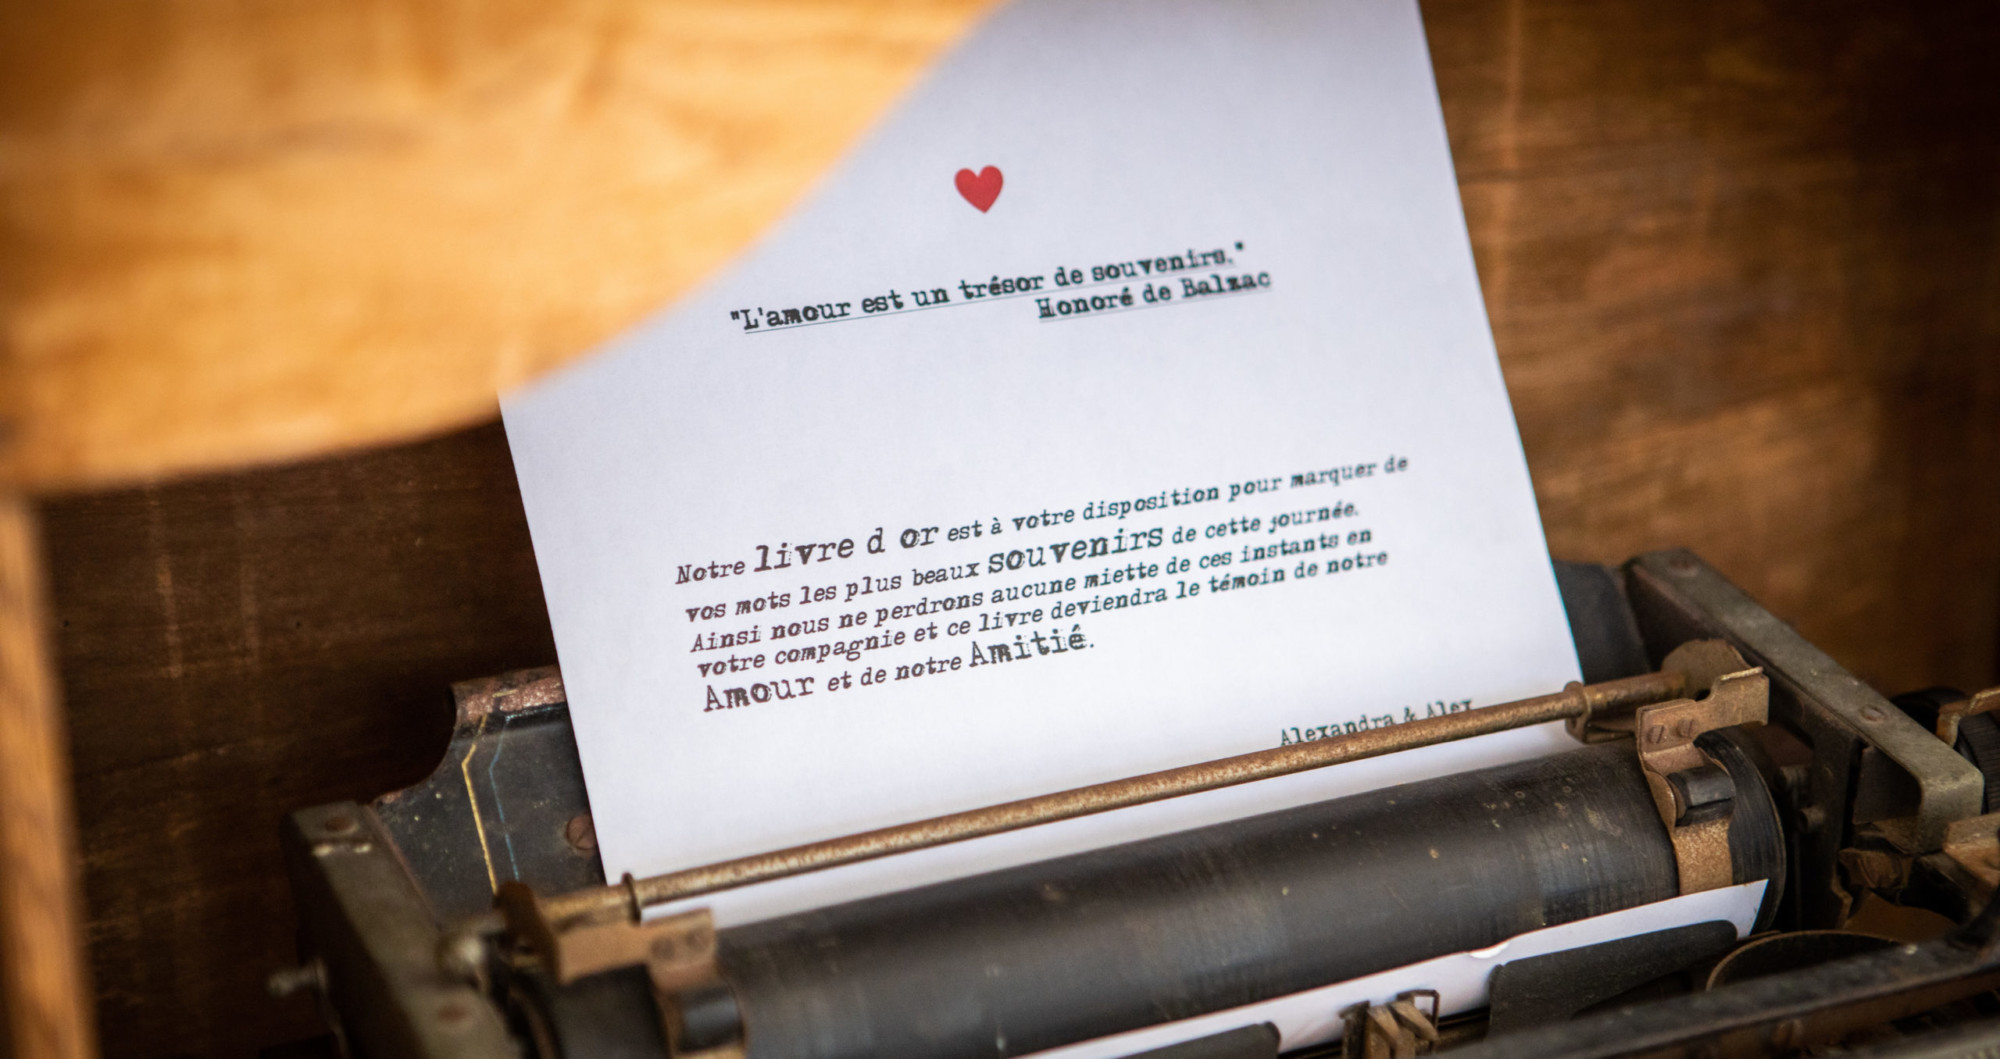 "L'amour est un trésor de souvenirs."
Honoré de Balzac
Notre livre d or est à votre disposition pour marquer de
vos mots les plus beaux souvenirs de cette journée.
Ainsi nous ne perdrons aucune miette de ces instants en
votre compagnie et ce livre deviendra le témoin de notre
Amour et de notre Amitié.
Alexandra & Alex